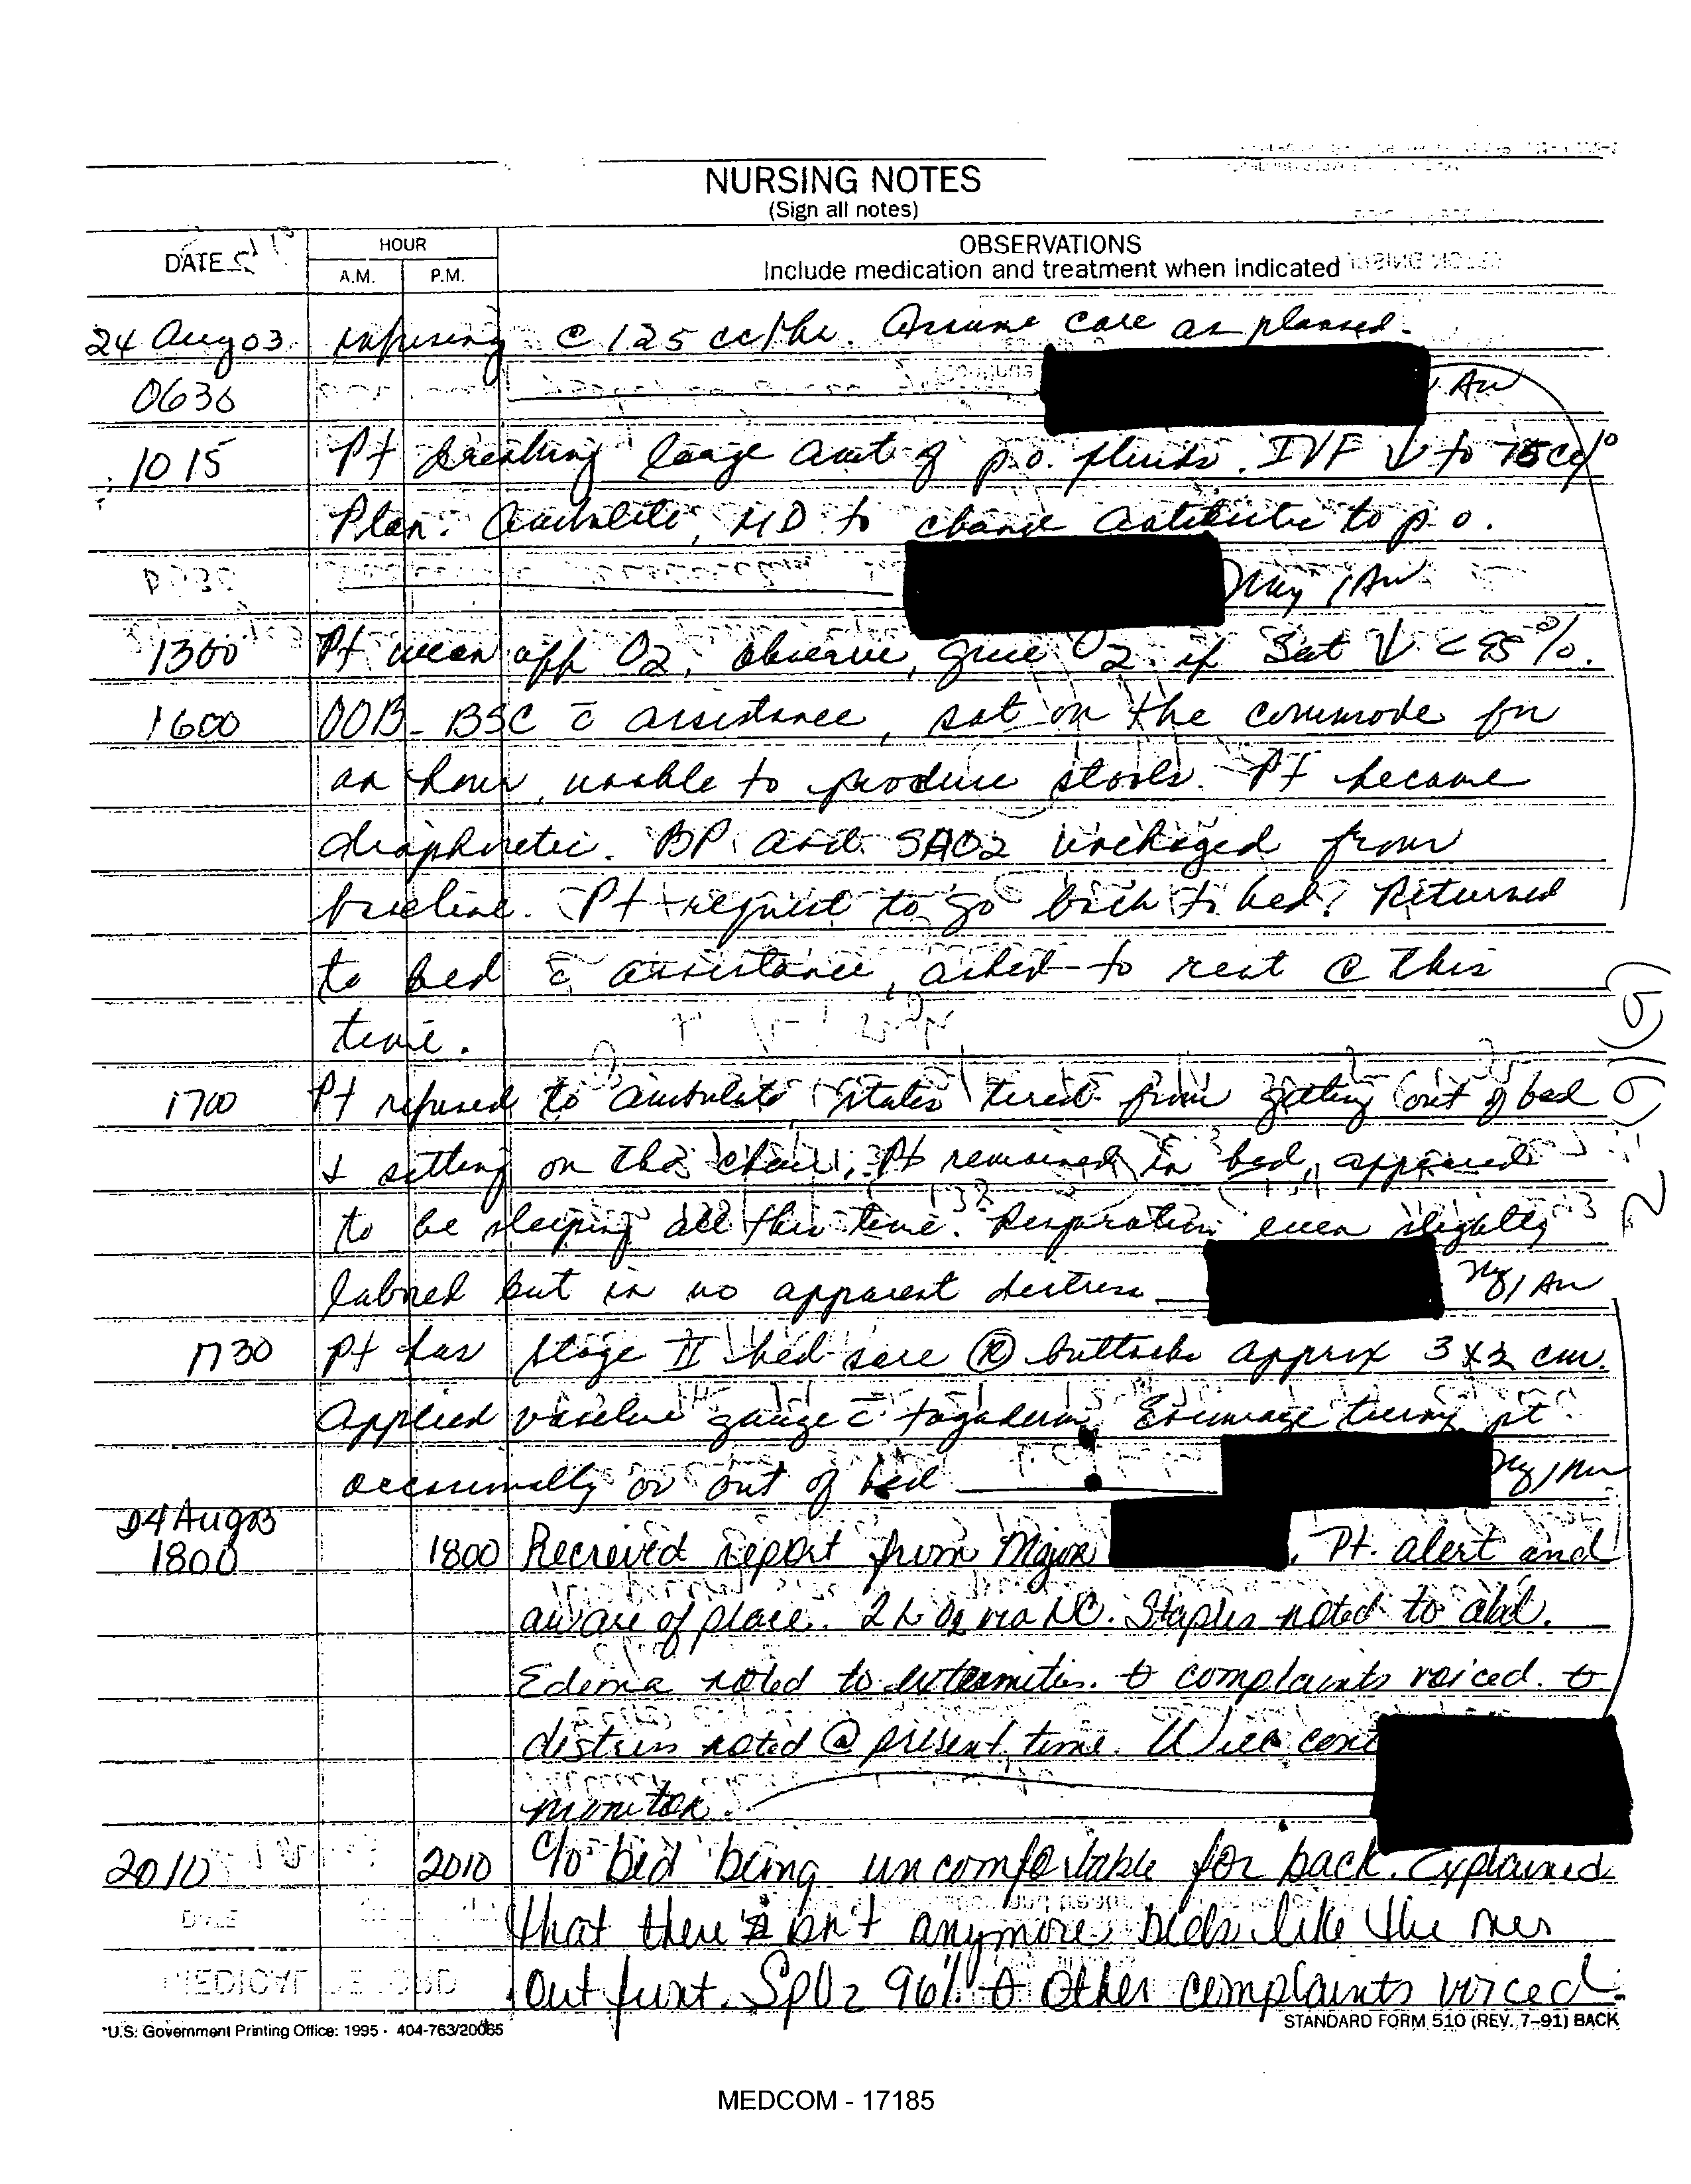 NURSING NOTES
(Sign all notes)
DATE
HOUR
A.M. P.M.
OBSERVATIONS
Include medication and treatment when indicated
24 Aug 03 infusing @ 125 cc/hr. Assume care as planned.
0630 AN
1015 Pt drinking large amt of p.o. fluids. IVF ↓ to 75cc/°
Plan: Ambulate, MD to change antibiotic to p.o.
Maj/AN
1300 Pt wean off O2, observe, give O2 if Sat ↓ < 95%.
1600 OOB - BSC c̄ assistance, sat on the commode for
an hour, unable to produce stools. Pt became
diaphoretic. BP and SAO2 unchaged from
baseline. Pt request to go back to bed. Returned
to bed c̄ assistance, asked to rest @ this
time.
1700 Pt refused to ambulate, states tired from getting out of bed
& sitting on the chair. Pt remained in bed, appeared
to be sleeping all this time. Respiration even slightly
labored but in no apparent distress Maj/AN
1730 pt has stage II bed sore Ⓡ buttocks approx 3 x 2 cm.
Applied vaseline gauze c̄ tagaderm. Encourage turning pt
occasionally or out of bed Maj/AN
24 Aug 03
1800 1800 Recieved report from Major . Pt. alert and
aware of place. 2L O2 via NC. Staples noted to abd.
Edema noted to extremities. ∅ complaints voiced. ∅
distress noted @ present time. Will cont
monitor.
2010 2010 C/o bed being uncomfortable for back. Explained
that there isn't anymore beds like the ones
out front. SpO2 96%. ∅ other complaints voiced.
*U.S. Government Printing Office: 1995 - 404-763/20065
STANDARD FORM 510 (REV. 7-91) BACK
MEDCOM - 17185